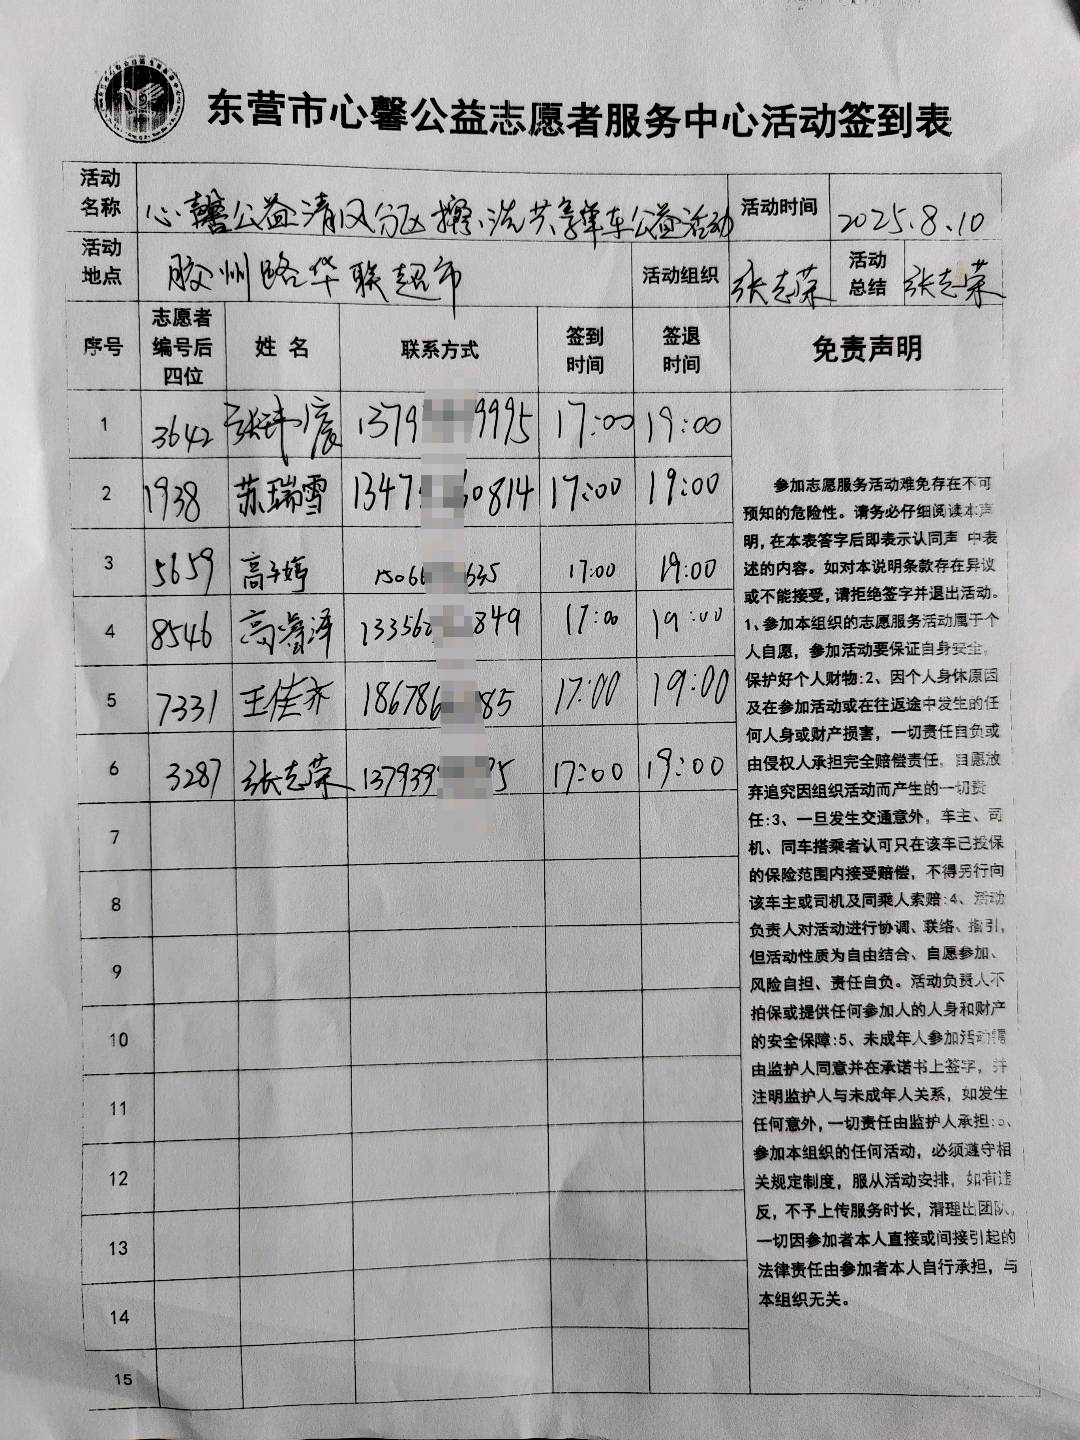 东营市心馨公益志愿者服务中心活动签到表
活动名称 心馨公益清风分区擦洗共享单车公益活动 活动时间 2025.8.10
活动地点 胶州路华联超市 活动组织 张志荣 活动总结 张志荣
序号 志愿者编号后四位 姓名 联系方式 签到时间 签退时间 免责声明
1 3642 1379 9995 17:00 19:00
2 1938 苏瑞雪 1347 60814 17:00 19:00
3 5659 高子婷 1506 635 17:00 19:00
4 8546 高睿泽 13356 849 17:00 19:00
5 7331 王佳齐 18678 85 17:00 19:00
6 3287 张志荣 137939 5 17:00 19:00
7
8
9
10
11
12
13
14
15
参加志愿服务活动难免存在不可
预知的危险性。请务必仔细阅读本声
明,在本表签字后即表示认同声 中表
述的内容。如对本说明条款存在异议
或不能接受,请拒绝签字并退出活动。
1、参加本组织的志愿服务活动属于个
人自愿，参加活动要保证自身安全。
保护好个人财物:2、因个人身体原因
及在参加活动或在往返途中发生的任
何人身或财产损害，一切责任自负或
由侵权人承担完全赔偿责任，自愿放
弃追究因组织活动而产生的一切责
任:3、一旦发生交通意外，车主、司
机、同车搭乘者认可只在该车已投保
的保险范围内接受赔偿，不得另行向
该车主或司机及同乘人索赔:4、活动
负责人对活动进行协调、联络、指引，
但活动性质为自由结合、自愿参加、
风险自担、责任自负。活动负责人不
担保或提供任何参加人的人身和财产
的安全保障:5、未成年人参加活动需
由监护人同意并在承诺书上签字，并
注明监护人与未成年人关系，如发生
任何意外,一切责任由监护人承担:6、
参加本组织的任何活动，必须遵守相
关规定制度，服从活动安排，如有违
反，不予上传服务时长，清理出团队，
一切因参加者本人直接或间接引起的
法律责任由参加者本人自行承担，与
本组织无关。